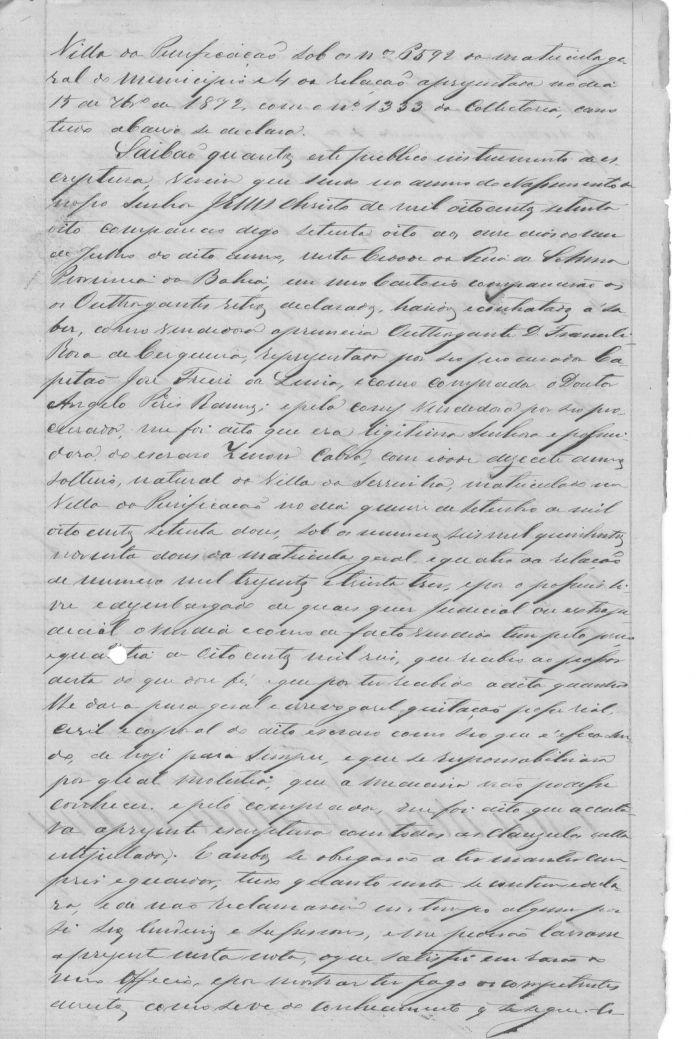 Villa da Purificação, sob os nos 6592 da matricula ge
ral do municipio e 4 da relação apresentada no dia
15 de 7bro de 1872, com o nº 1333 da Collectoria, como
tudo abaixo se declara.
Saibão quantos este publico instrumento de es
criptura, virem que sendo no anno do Nascimento de
Nosso Senhor JESUS Christo de mil oito centos setenta
oito digo setenta oito aos
de Junho do dito anno, nesta Cidade da Feira de
Provincia da Bahia, em meu Cartorio comparecerão os
os Outhorgantes retro declarados, havidos e contratados á sa
ber, como vendedora a primeira Outhorgante D.
Rosa de Cerqueira, representada por seo procurador Ca
pitão José da e como comprador o Doutor
Angelo Pires Ramos; e pela vendedora por seo pro
curador, me foi dito que era legitima Senhora e possui
dora do escravo Zinon, Cabra, com idade dezesete annos
solteiro, natural da Villa da Serrinha, matriculado na
Villa da Purificação no dia quinze de Setembro de mil
oito centos setenta dous, sob os numeros seis mil quinhentos
noventa dous da matricula geral e quatro da relação
de numero mil trezentos e trinta tres, e por o possuir li
vre e desembargado de quaes quer judicial ou extraju
dicial o vendia e como de facto vendido tem pelo preço
e quantia de oito centos mil reis, que recebeo ao passar
desta do que dou fé: e que por ter recebido a dita quantia
lhe dava para geral e irrevogavel quitação
civil e corporal do dito escravo como seo que é e fica sen
do, de hoje para sempre, e que se responsabilisava
por qual molestia, que a medicina não podesse
conhecer: e pelo comprador, me foi dito que aceita
va a presente escriptura com todas as clausulas nella
estipuladas. E ambos se obrigarão a ter manter cum
prir e guardar, tudo quanto nesta se contem e decla
ra, e de não reclamarem em tempo algum por
si seos herdeiros e sucessores, e me pedirão lavrasse
a presente nesta nota, o que satisfis em razão do
meu Officio, e por mostrar ter pago os competentes
direitos, como se ve do conhecimento q se segue.